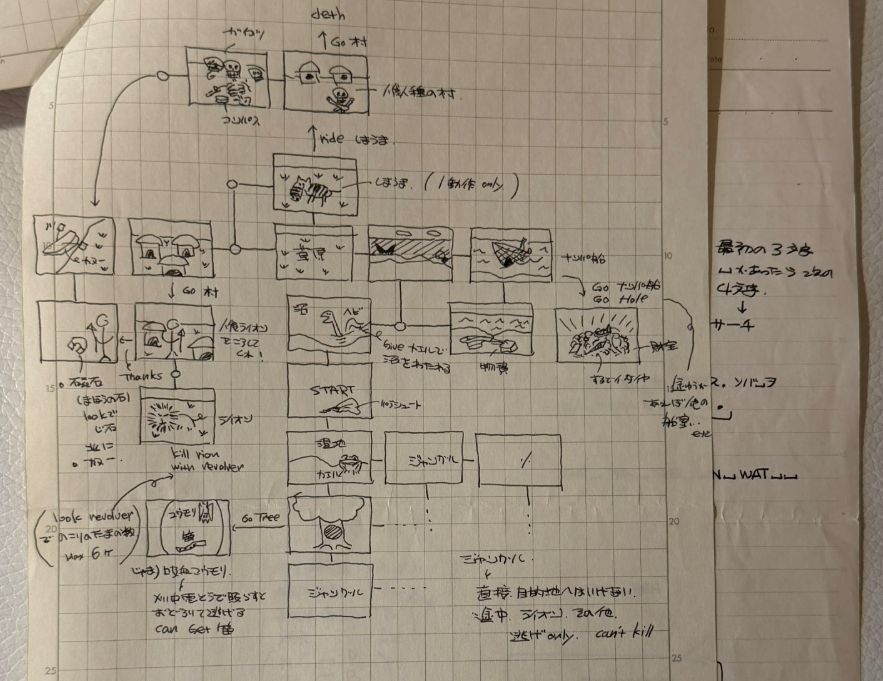 deth
↑ Go 村
ガイコツ
コンパス
人食人種の村
↑ ride しまうま
しまうま (1動作 only)
カヌー
草原
ナンパ船
Go 村
Go ナンパ船
Go Hole
沼
ヘビ
Give カエルで
沼をわたれる
物資
財宝
するとイタイヤ
人食ライオン
ころして
くれ!
Thanks
石
(まほうの石)
lookで
次に
カヌー
START
パラシュート
ライオン
kill rion
with revolver
湿地
カエル
ジャングル
〃
look revolver
でのこりのたまの数
Max 6ヶ
コウモリ
笛
Go Tree
じゃま) 吸血コウモリ
懐中電とうで照らすと
おどろいて逃げる
can Get 笛
ジャングル
ジャングル
直接目的地へはいけない
途中、ライオン、その他
逃げ only. can't kill
あれば他の
船室...
etc
最初の3文字
4文字
↓
サーチ
WAT
5
10
10
15
20
20
25
25